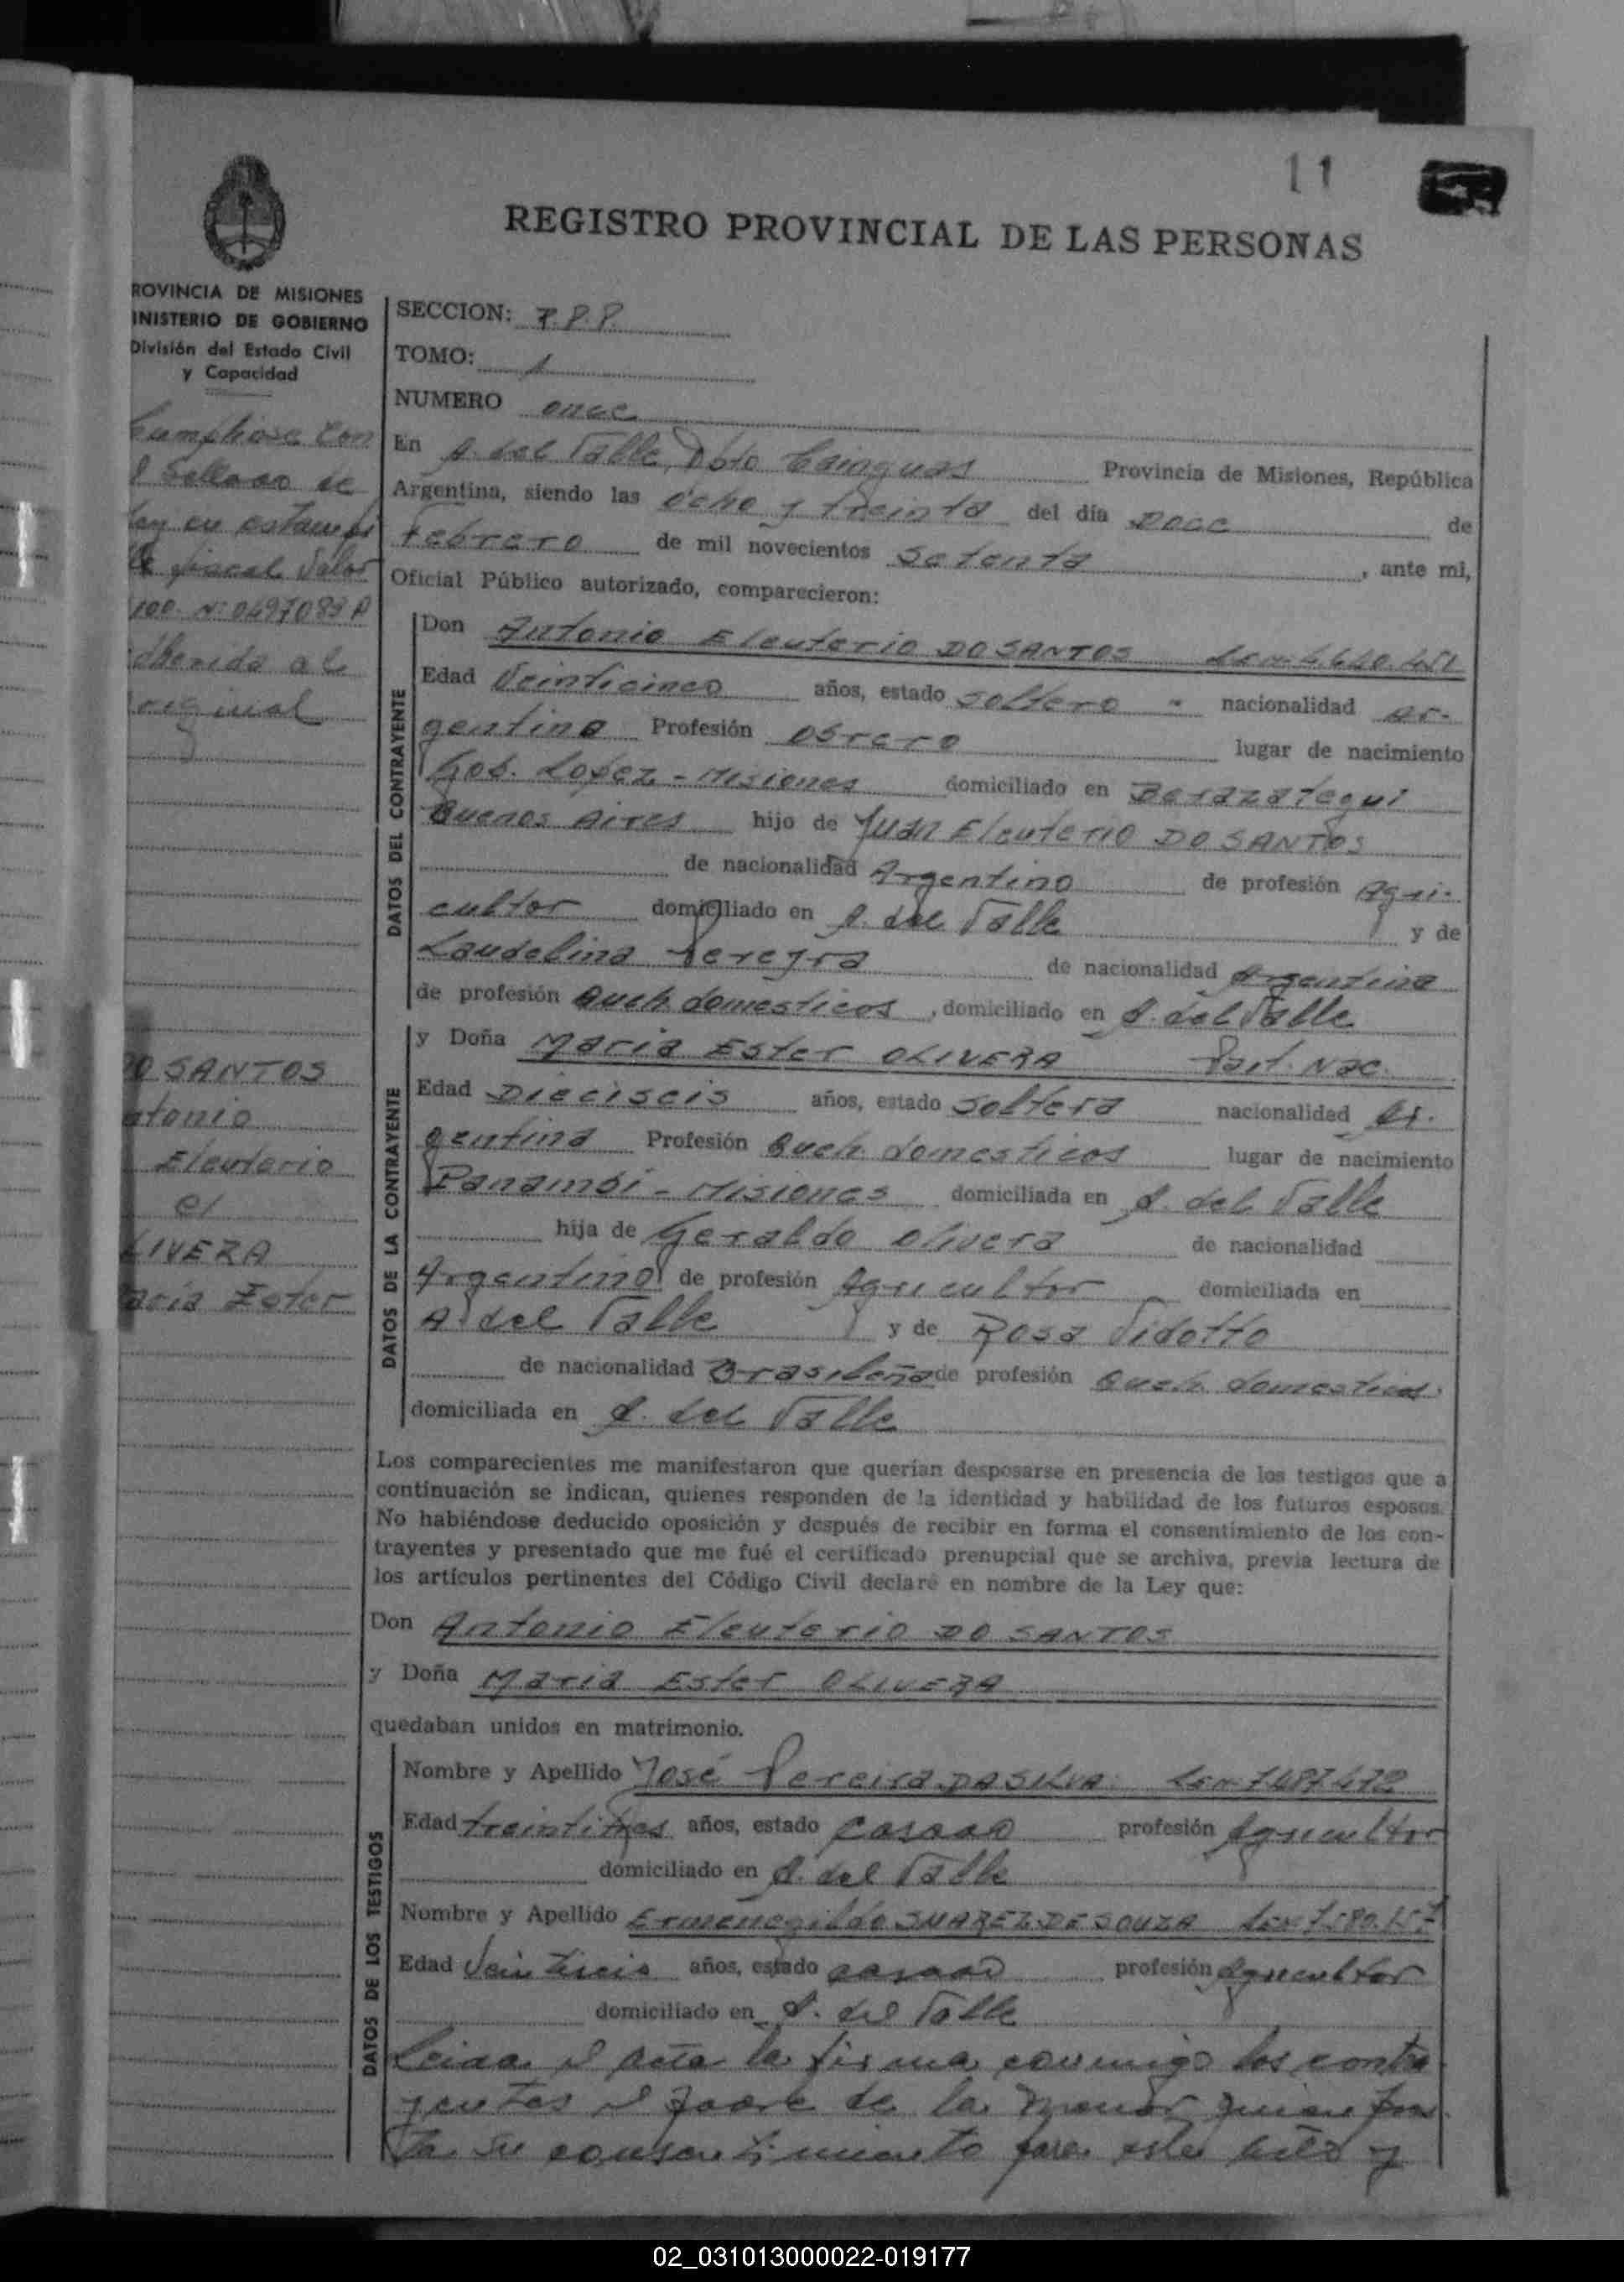 11
REGISTRO PROVINCIAL DE LAS PERSONAS
ROVINCIA DE MISIONES
INISTERIO DE GOBIERNO
División del Estado Civil
y Capacidad
SECCION: F.P.P.
TOMO: 1
NUMERO once
En A. del Valle, Dpto Cainguas Provincia de Misiones, República
Argentina, siendo las ocho y treinta del día Doce de
Febrero de mil novecientos Setenta, ante mi,
Oficial Público autorizado, comparecieron:
sellado de
ley en
fiscal Valor
100. Nº 0497089 A
dherida al
riginal
DATOS DEL CONTRAYENTE
Don Antonio Eleuterio DO SANTOS
Edad Veinticinco años, estado soltero - nacionalidad ar-
gentina Profesión Obrero lugar de nacimiento
Gob. Lopez - Misiones domiciliado en Berazategui
Buenos Aires hijo de Juan Eleuterio DO SANTOS
de nacionalidad Argentino de profesión Agri-
cultor domiciliado en A. del Valle y de
Laudelina Pereyra de nacionalidad Argentina
de profesión Queh. domesticos, domiciliado en A. del Valle
DATOS DE LA CONTRAYENTE
y Doña Maria Ester OLIVERA Part. Nac.
Edad Dieciseis años, estado Soltera nacionalidad Ar-
gentina Profesión Queh. domesticos lugar de nacimiento
Panambi - Misiones domiciliada en A. del Valle
hija de Geraldo Olivera de nacionalidad
Argentino de profesión Agricultor domiciliada en
A. del Valle y de Rosa Vidotto
de nacionalidad Brasileña de profesión Queh. domesticos
domiciliada en A. del Valle
O SANTOS
ntonio
Eleuterio
c/
LIVERA
aria Ester
Los comparecientes me manifestaron que querían desposarse en presencia de los testigos que a
continuación se indican, quienes responden de la identidad y habilidad de los futuros esposos.
No habiéndose deducido oposición y después de recibir en forma el consentimiento de los con-
trayentes y presentado que me fué el certificado prenupcial que se archiva, previa lectura de
los artículos pertinentes del Código Civil declaré en nombre de la Ley que:
Don Antonio Eleuterio DO SANTOS
y Doña Maria Ester OLIVERA
quedaban unidos en matrimonio.
DATOS DE LOS TESTIGOS
Nombre y Apellido José Pereira DA SILVA
Edad treintitres años, estado casado profesión Agricultor
domiciliado en A. del Valle
Nombre y Apellido Ermenegildo SUAREZ DE SOUZA
Edad Veintiseis años, estado casado profesión Agricultor
domiciliado en A. del Valle
Leida el acta la firma conmigo los contra
yentes el padre de la menor quien pres
ta su consentimiento para este acto y
02_031013000022-019177